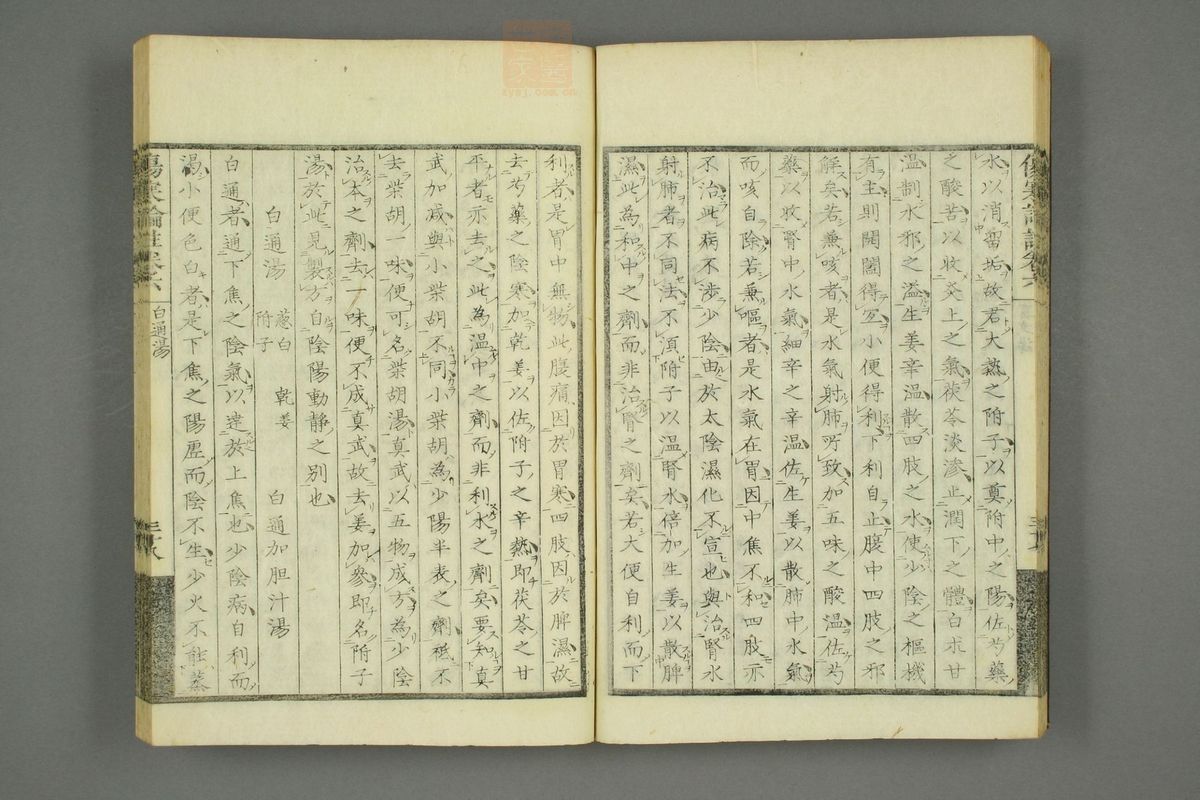 水以消留垢故君大熱之附子以奠附中之陽佐芍藥
之酸苦以收炎上之氣茯苓淡滲止潤下之體白朮甘
温制水邪之溢生姜辛温散四肢之水使少陰之樞機
有主則開闔得宜小便得利下利自止腹中四肢之邪
解矣若兼咳者是水氣射肺所致加五味之酸温佐芍
藥以收腎中水氣細辛之辛温佐生姜以散肺中水氣
而咳自除若兼嘔者是水氣在胃因中焦不和四肢亦
不治此病不涉少陰由於太陰濕化不宣也與治腎水
射肺者不同法不須附子以温腎水倍加生姜以散脾
濕此為和中之劑而非治腎之劑矣若大便自利而下
利者是胃中無物此腹痛因於胃寒四肢因於脾濕故
去芍藥之陰寒加乾姜以佐附子之辛熱即茯苓之甘
平者亦去之此為温中之劑而非利水之劑矣要知真
武加减與小柴胡不同小柴胡為少陽半表之劑秪不
去柴胡一味便可名柴胡湯真武以五物成方為少陰
治本之劑去一味便不成真武故去姜加參即名附子
湯於此見製方自陰陽動靜之別也
白通湯 葱白 附子 乾姜 白通加胆汁湯
白通者通下焦之陰氣以達於上焦也少陰病自利而
渴小便色白者是下焦之陽虛而陰不生少火不能蒸
傷寒論註卷六
白通湯